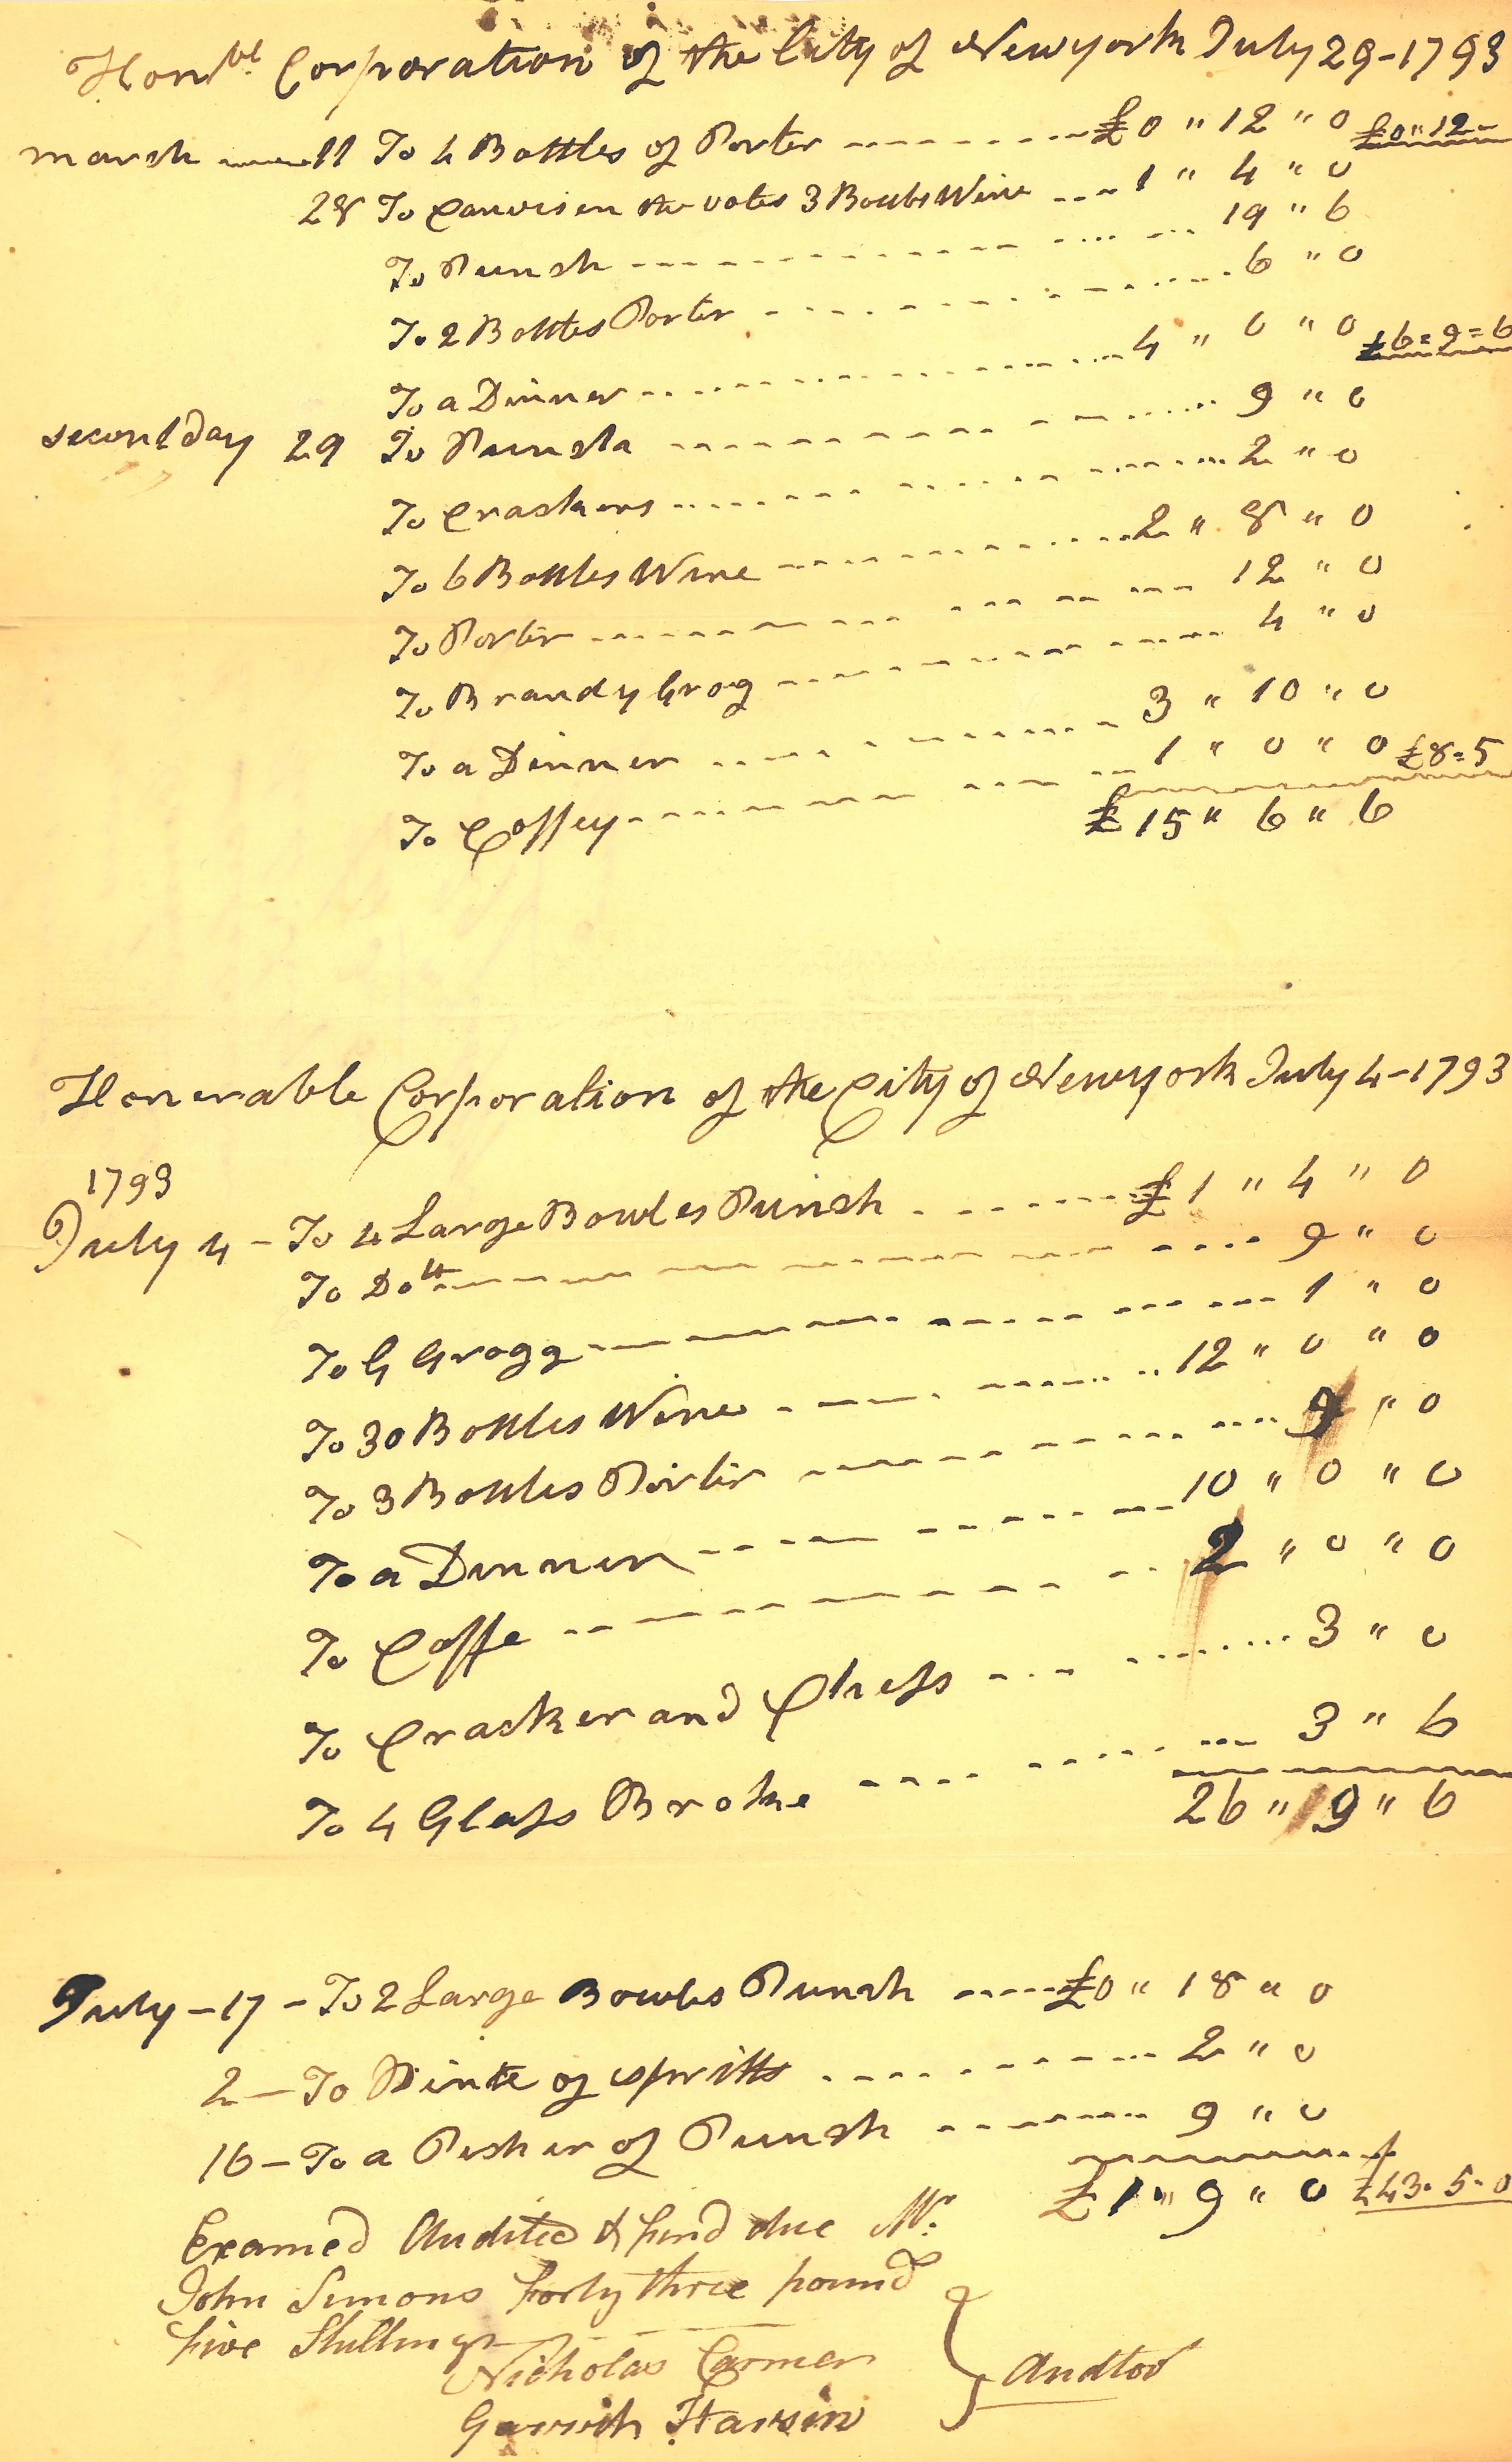 Honbl Corporation of the City of Newyork July 29-1793
march 11 To 4 Bottles of Porter £0 " 12 " 0 £0 " 12 -
28 To Canvisen the votes 3 Bottls Wine 1 " 4 " 0
To Punsh 19 " 6
To 2 Bottles Porter 6 " 0
To a Dinner 4 " 0 " 0 £6 = 9 = 6
secont day 29 To Punsh 9 " 0
To Crashers 2 " 0
To 6 Bottles Wine 2 " 8 " 0
To Porter 12 " 0
To Brandy Grog 4 " 0
To a Dinner 3 " 10 " 0
To Coffey 1 " 0 " 0 £8 = 5
£15 " 6 " 6
Honerable Corporation of the City of Newyork July 4-1793
1793
July 4 - To 4 Large Bowles Punsh £1 " 4 " 0
To Dott 9 " 0
To G Grogg 1 " 0
To 30 Bottles Wine 12 " 0 " 0
To 3 Bottles Porter 9 " 0
To a Dinner 10 " 0 " 0
To Coffe 2 " 0 " 0
To Cracker and Chess 3 " 0
To 4 Glass Broke 3 " 6
26 " 9 " 6
July - 17 - To 2 Large Bowles Punsh £0 " 18 " 0
2 - To Pinte of spritts 2 " 0
16 - To a Pesher of Punsh 9 " 0
£1 " 9 " 0 £43 - 5 - 0
Examed Audited & find due Mr.
John Simons forty three pound
five Shillings
Nicholas Carmer
Garrith Harsin
Audtor